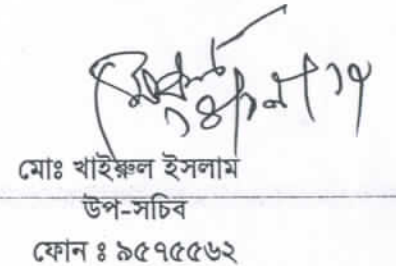 মোঃ খাইরুল ইসলাম
উপ-সচিব
ফোন ঃ ৯৫৭৫৫৬২